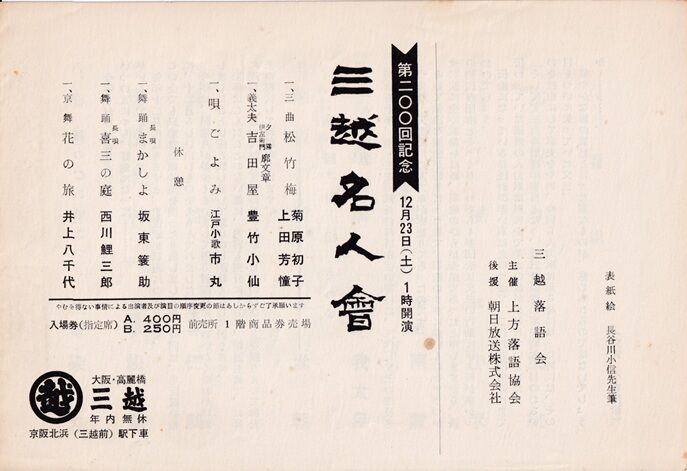 表紙絵 長谷川小信先生筆
三越落語会
主催 上方落語協会
後援 朝日放送株式会社
第二〇〇回記念
12月23日(土)1時開演
三越名人會
一、三曲 松竹梅 菊原初子 上田芳憧
一、義太夫 夕霧 伊左衛門 廓文章 吉田屋 豊竹小仙
一、唄ごよみ 江戸小歌 市丸
休憩
一、舞踊 長唄 まかしよ 坂東簑助
一、舞踊 長唄 喜三の庭 西川鯉三郎
一、京舞 花の旅 井上八千代
やむを得ない事情による出演者及び演目の順序変更の節はあしからずご了承願います
入場券(指定席) A. 400円 B. 250円 前売所 1階商品券売場
越
大阪・高麗橋
三越
年内無休
京阪北浜(三越前)駅下車